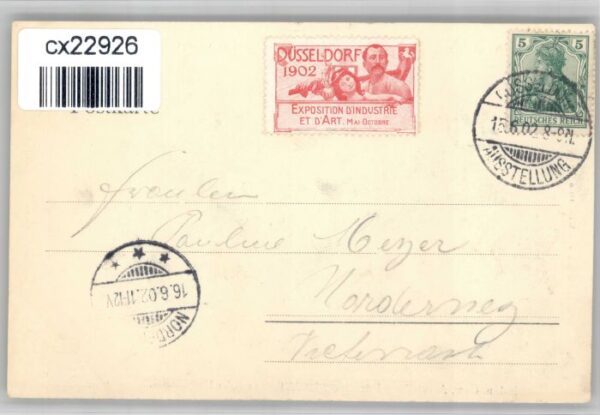 cx22926
Postkarte
DÜSSELDORF
1902
EXPOSITION D'INDUSTRIE
ET D'ART. MAI-OCTOBRE
5 5
DEUTSCHES REICH
15.6.02.8-9N.
AUSSTELLUNG
Fräulein
Pauline Meyer
Norderney
16.6.02.11-12V.